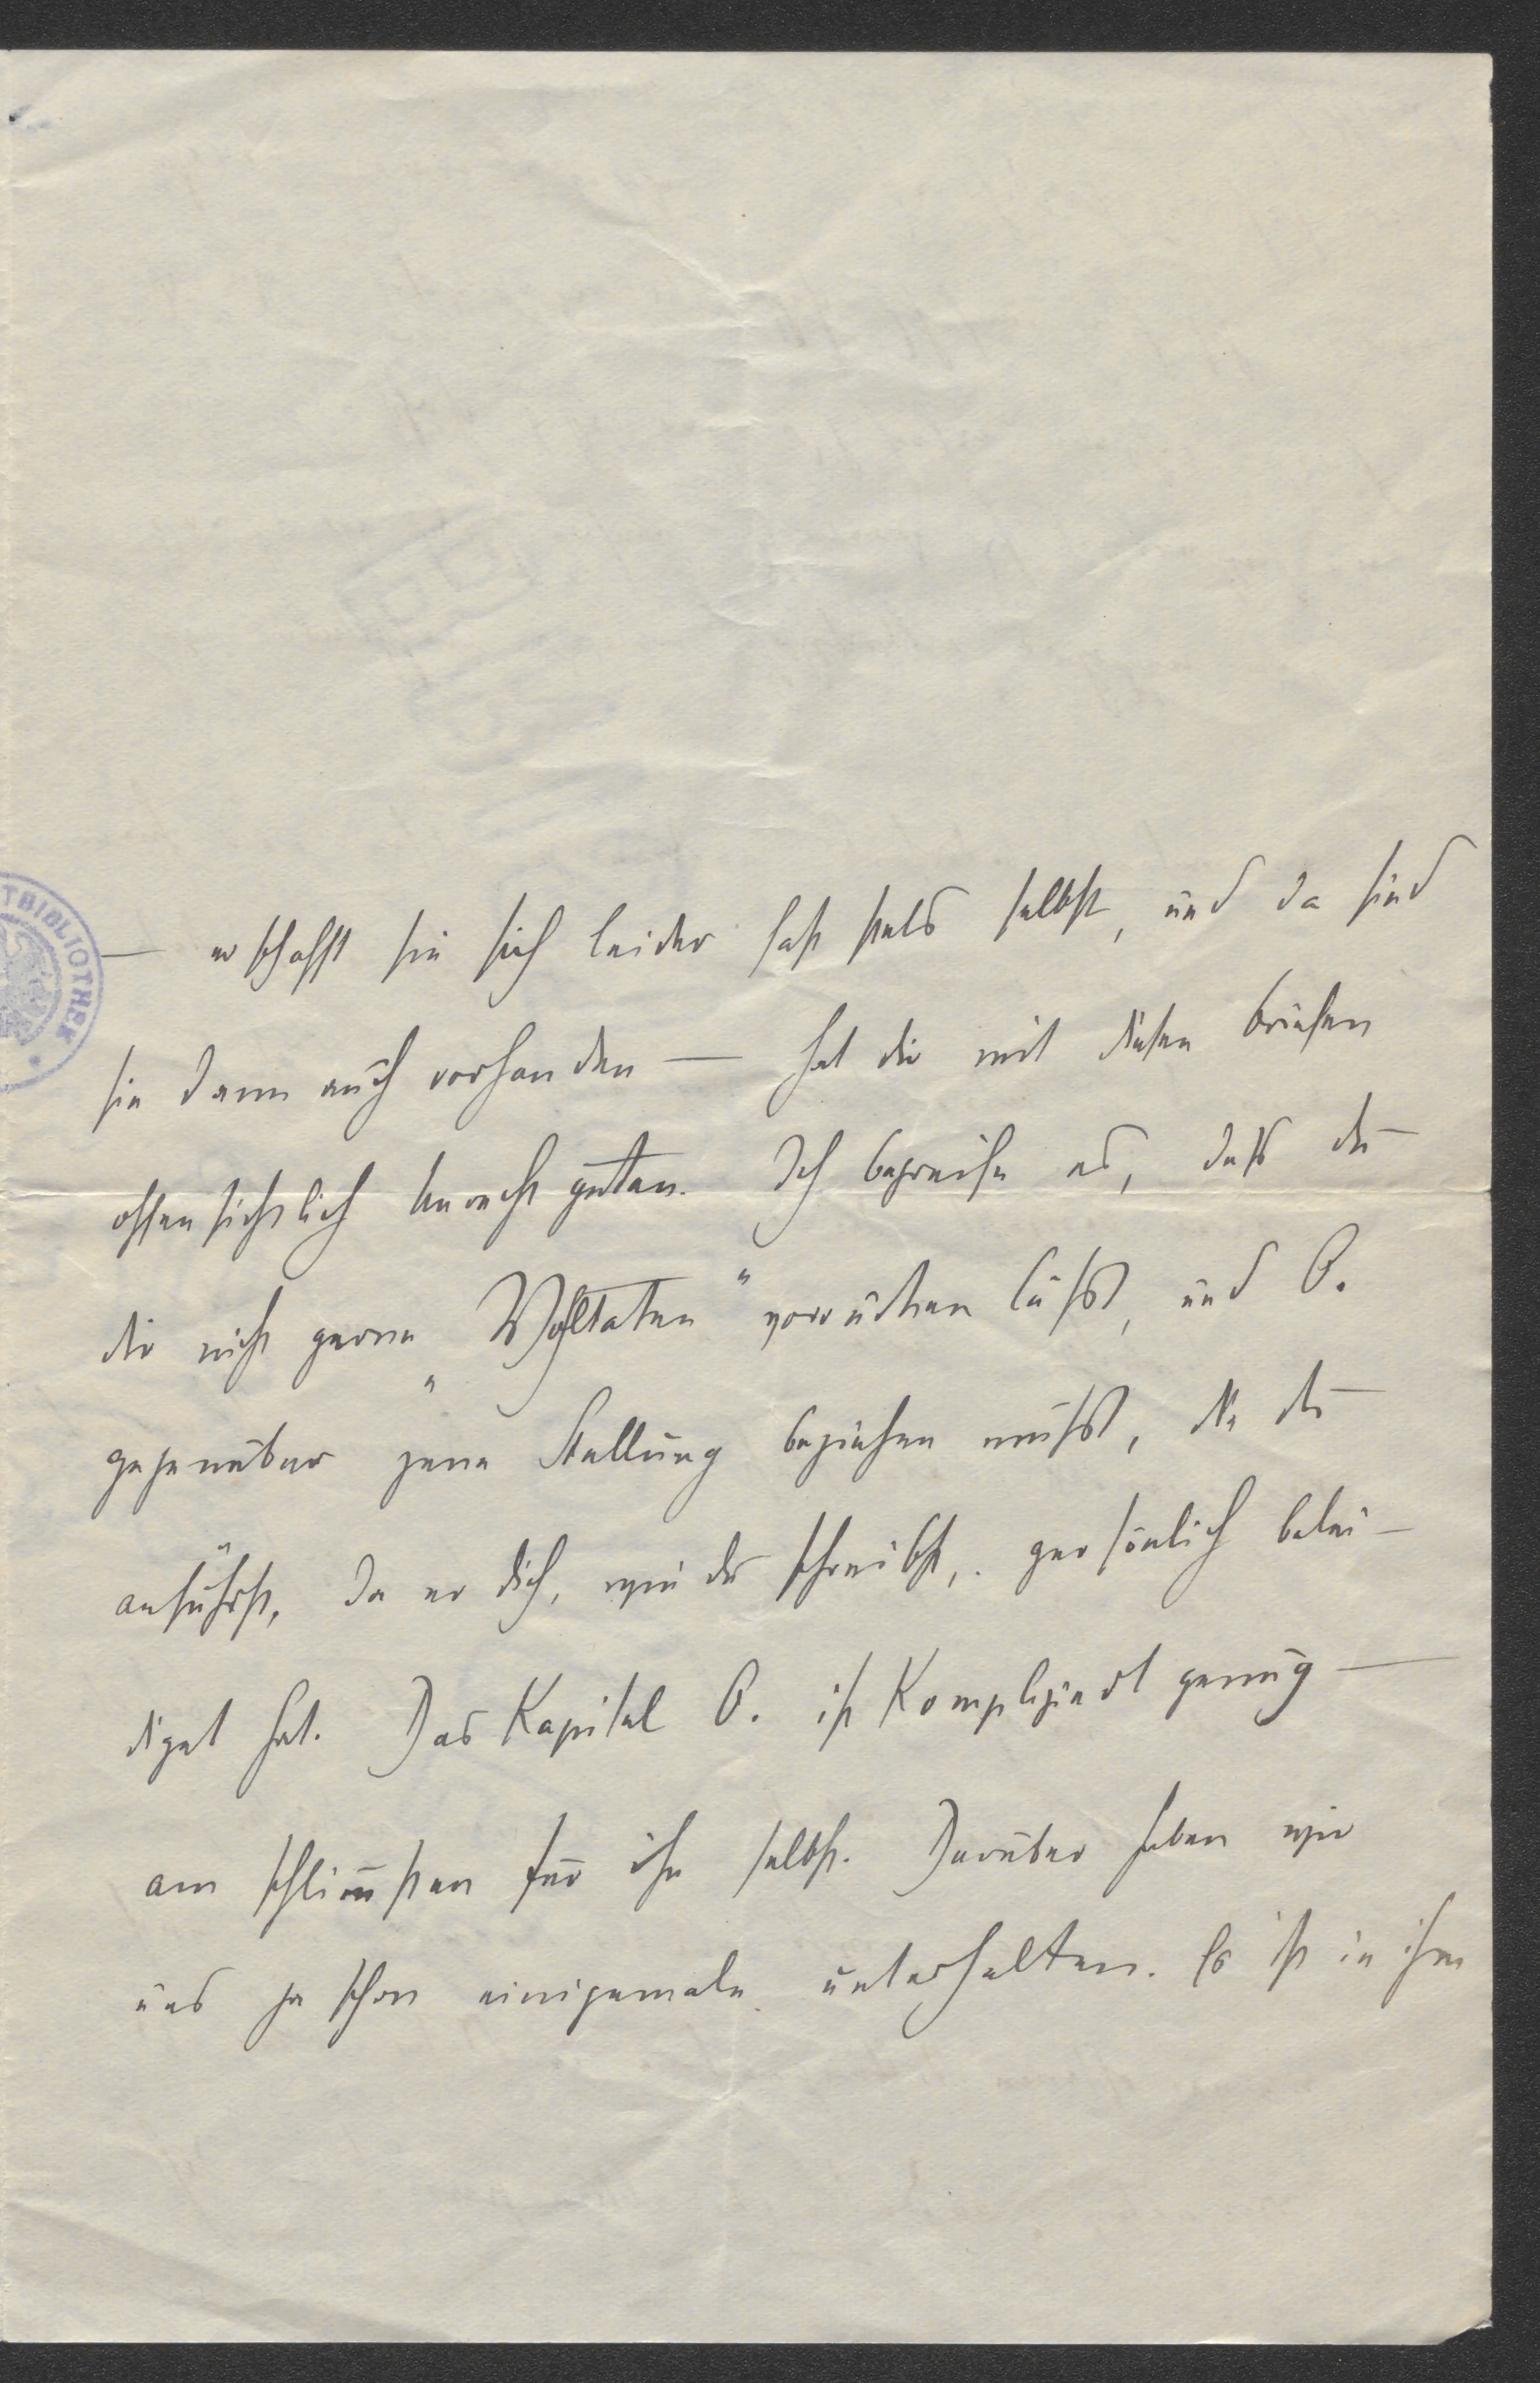 TBIBLIOTHEK
— er schafft sie sich leider fast stets selbst, und da sind
sie dann auch vorhanden — hat dir mit diesen Briefen
offensichtlich Unrecht getan. Ich begreife es, daß du
dir nicht gerne „Wohltaten" vorrücken läßt, und O.
gegenüber jene Stellung beziehen mußt, die du
anführst, da er dich, wie du schreibst, persönlich belei-
digt hat. Das Kapitel O. ist Kompliziert genug —
am schlim̅sten für ihn selbst. Darüber haben wir
uns ja schon einigemale unterhalten. Es ist in ihm